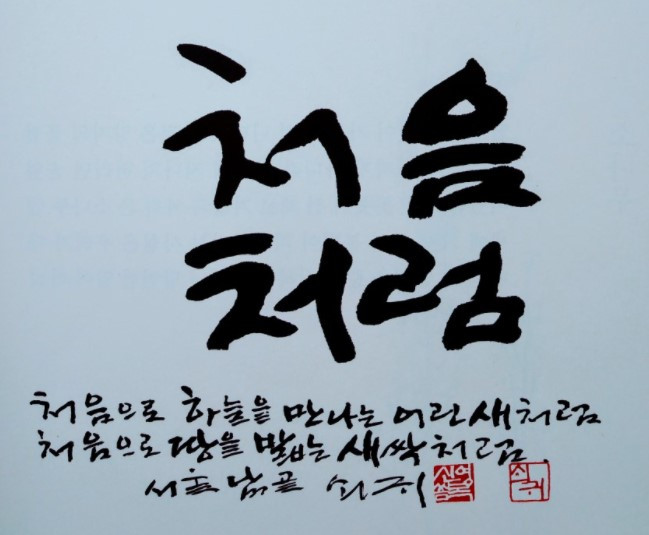 처음
처럼
처음으로 하늘을 만나는 어린 새처럼
처음으로 땅을 밟는 새싹처럼
서울 남골 쇠귀